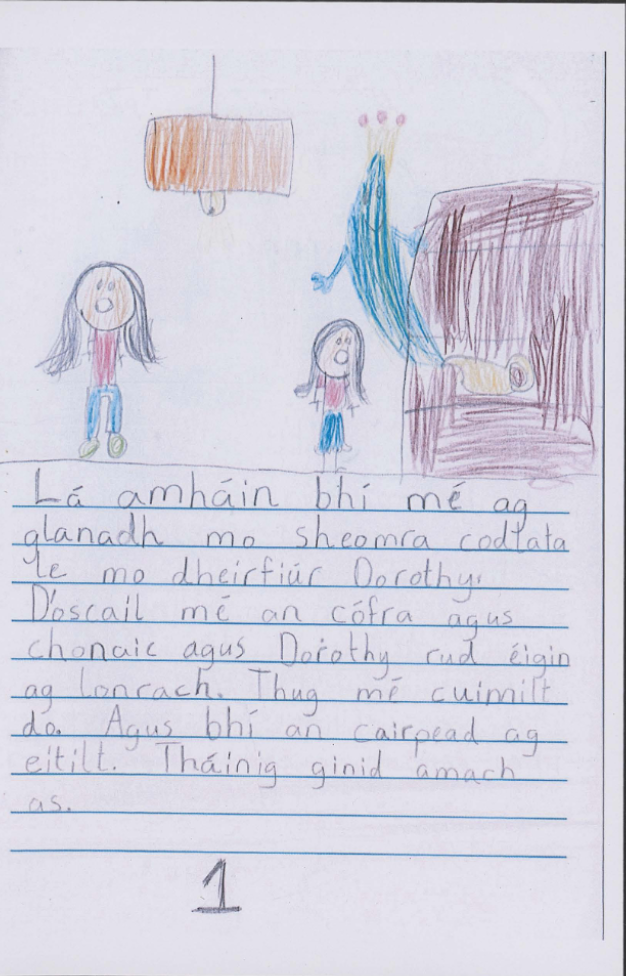 Lá amháin bhí mé ag
glanadh mo sheomra codlata
le mo dheirfiúr Dorothy.
D'oscail mé an cófra agus
chonaic agus Dorothy rud éigin
ag lonrach. Thug mé cuimilt
do. Agus bhí an cairpead ag
eitilt. Tháinig ginid amach
as.
1